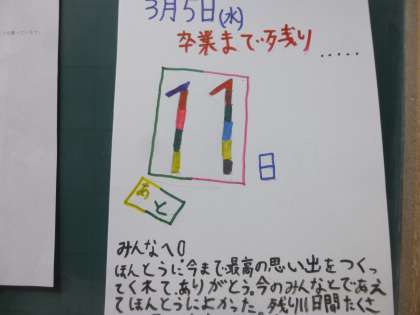 3月5日(水)
卒業まで残り
.....
11日
あと
みんなへ
ほんとうに今まで最高の思い出をつくっ
てくれて、ありがとう。今のみんなとであえ
てほんとうによかった。残り11日間たくさ